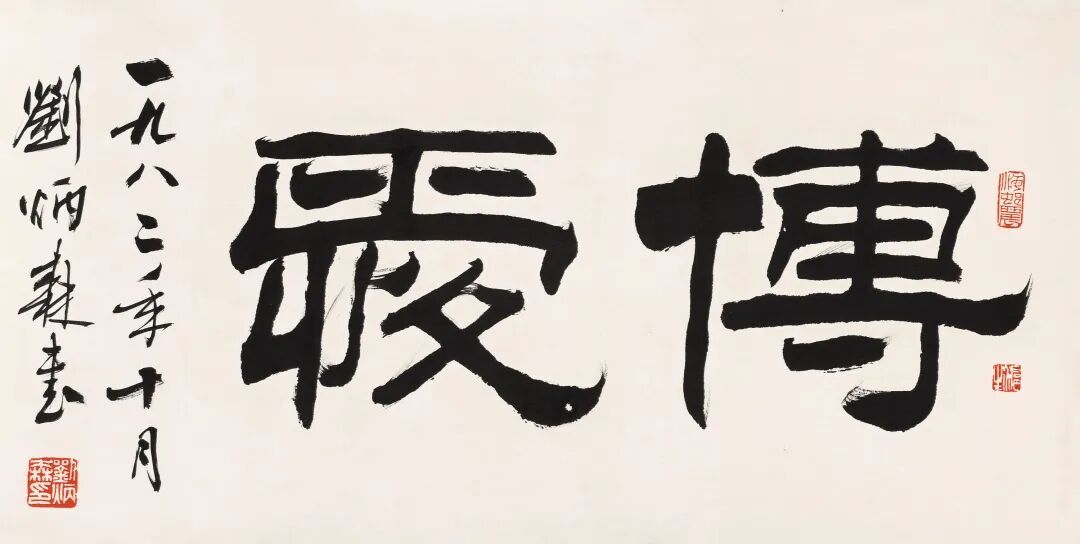 博愛
一九八二年十月
劉炳森書
劉炳森印